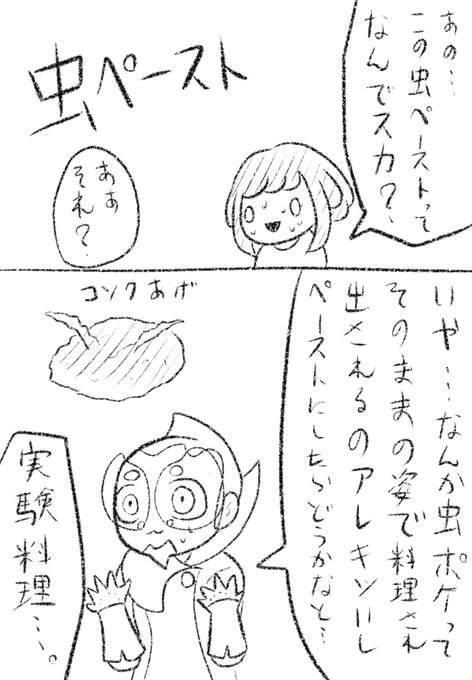 あの…
この虫ペーストって
なんでスカ?
虫ペースト
ああ
それ?
いや…なんか虫ポケって
そのままの姿で料理され
出されるのアレキツいし
ペーストにしたらどうかなと…
コンクあげ
実験料理…。